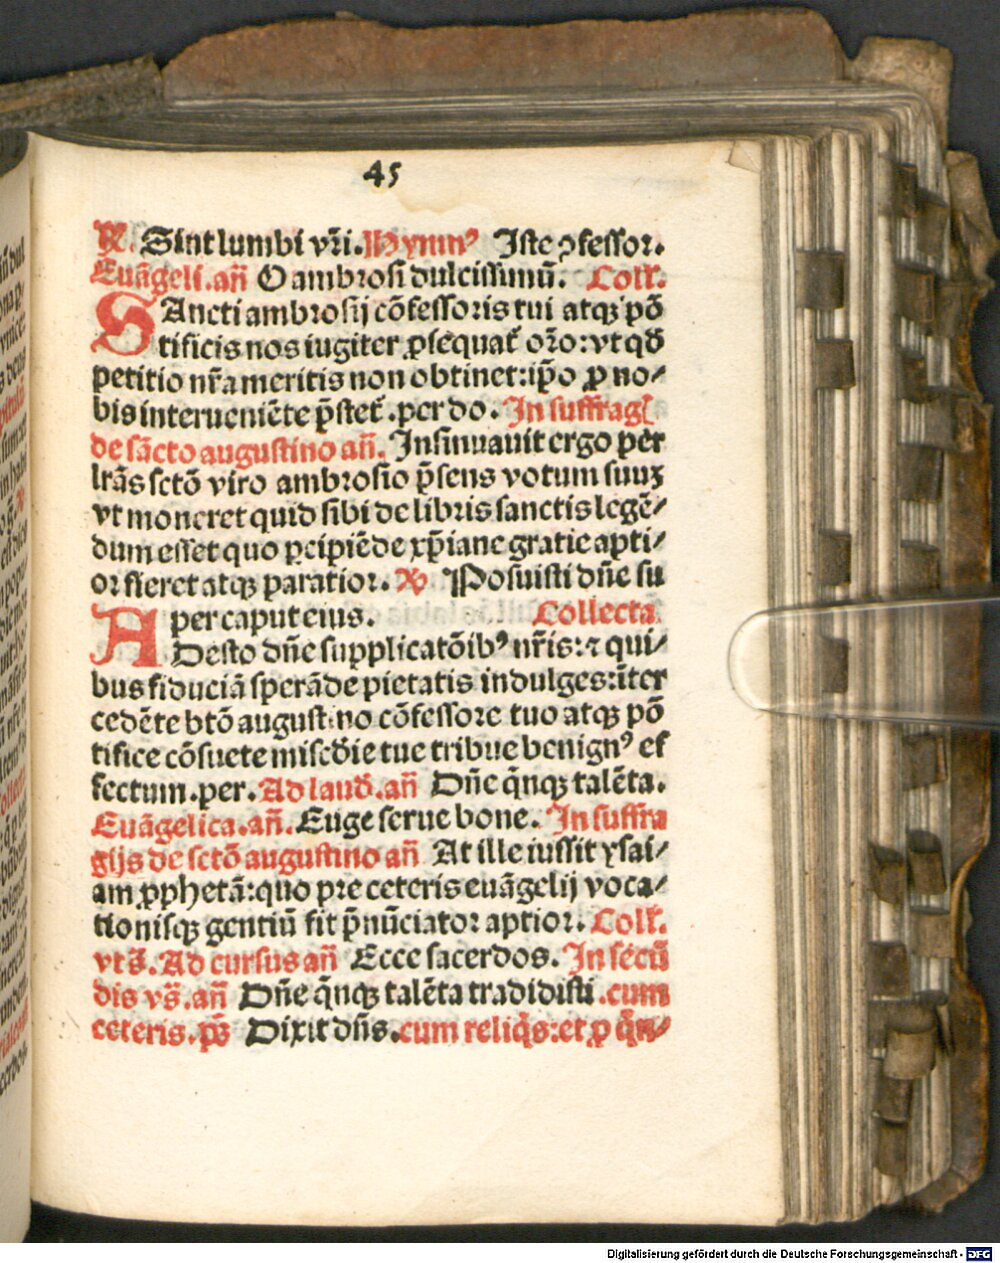 45
℟. Sint lumbi vr̃i. Hymnꝰ Iste ꝯfessor.
Euãgeli. añ O ambrosi dulcissimũ. Coll̃.
SAncti ambrosij cõfessoris tui atqꝫ põ
tificis nos iugiter ꝓsequat᷑ or̃o: vt qđ
petitio nr̃a meritis non obtinet: ip̃o ꝓ no⸗
bis interueniẽte p̃stet᷑. per do. In suffragl̃
de sãcto augustino añ. Insinuauit ergo per
lr̃as sctõ viro ambrosio p̃sens votum suuꝫ
vt moneret quid sibi de libris sanctis legẽ⸗
dum esset quo ꝑcipiẽde xp̃iane gratie apti⸗
or fieret atqꝫ paratior. ℟ Posuisti dñe su
per caput eius. Collecta.
ADesto dñe supplicatõibꝰ nr̃is: ⁊ qui⸗
bus fiduciã sperãde pietatis indulges: ĩter
cedẽte btõ augustino cõfessore tuo atqꝫ põ
tifice cõsuete miscđie tue tribue benignꝰ ef
fectum. per. Ad lauđ. añ Dñe q̃nqꝫ talẽta.
Euãgelica. añ. Euge serue bone. In suffra
gijs de sctõ augustino añ At ille iussit ysai⸗
am ꝓphetã: quo pre ceteris euãgelij voca⸗
tionisqꝫ gentiũ fit p̃nũciator aptior. Coll̃.
vt s̃. Ad cursus añ Ecce sacerdos. In secũ
dis vs̃. añ Dñe q̃nqꝫ talẽta tradidisti. cum
ceteris. ps̃ Dixit dñs. cum reliq̃s: et ꝓ q̃n⸗
Digitalisierung gefördert durch die Deutsche Forschungsgemeinschaft - DFG